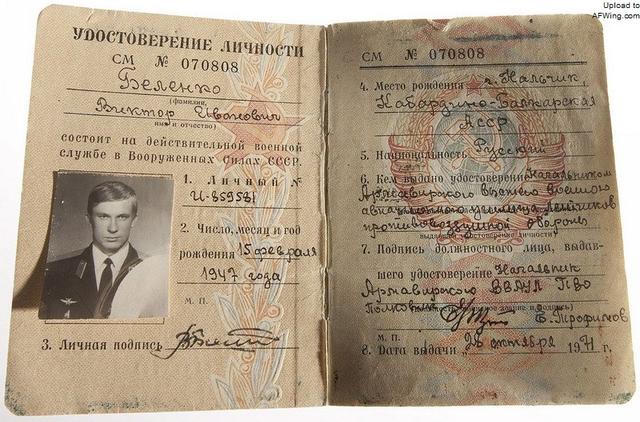 Upload to
AFWing.com
УДОСТОВЕРЕНИЕ ЛИЧНОСТИ
СМ № 070808
Беленко
(фамилия,
Виктор Иванович
имя и отчество)
состоит на действительной военной
службе в Вооруженных Силах СССР.
1. Личный №
И-859581
2. Число, месяц и год
рождения 15 февраля
1947 года
М. П.
3. Личная подпись
СМ № 070808
4. Место рождения г. Нальчик,
Кабардино-Балкарская
АССР
5. Национальность Русский
6. Кем выдано удостоверение Начальником
Армавирского высшего военного
авиационного училища летчиков
противовоздушной обороны
выдавшего удостоверение личности)
7. Подпись должностного лица, выдав-
шего удостоверение Начальник
Армавирского ВВАУЛ ПВО
Полковник Е. Трофимов
М. П.
8. Дата выдачи „28 октября 1971 г.